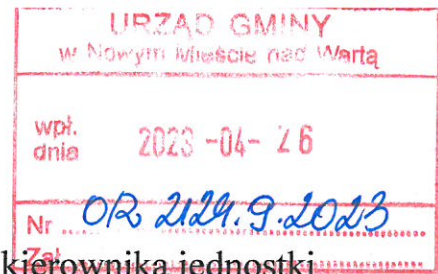 URZĄD GMINY
w Nowym Mieście nad Wartą
wpł.
dnia 2023 -04- 26
Nr OR 2124.9.2023
Zał.
kierownika jednostki